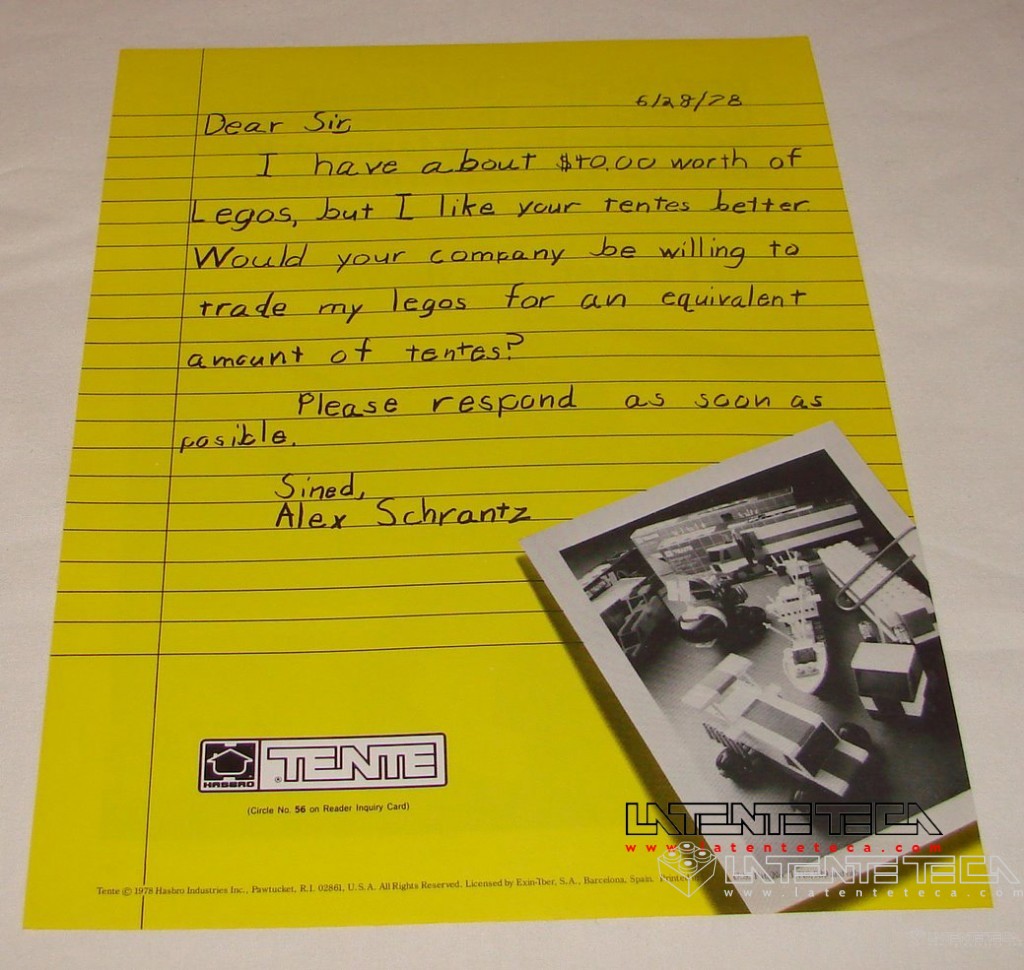 6/28/78
Dear Sir,
I have about $40.00 worth of
Legos, but I like your tentes better.
Would your company be willing to
trade my legos for an equivalent
amount of tentes?
Please respond as soon as
posible.
Sined,
Alex Schrantz
HASBRO ® TENTE
(Circle No. 56 on Reader Inquiry Card)
LATENTETECA
www.latenteteca.com
LATENTETECA
www.latenteteca.com
Tente © 1978 Hasbro Industries Inc., Pawtucket, R.I. 02861, U.S.A. All Rights Reserved. Licensed by Exin-Iber, S.A., Barcelona, Spain.